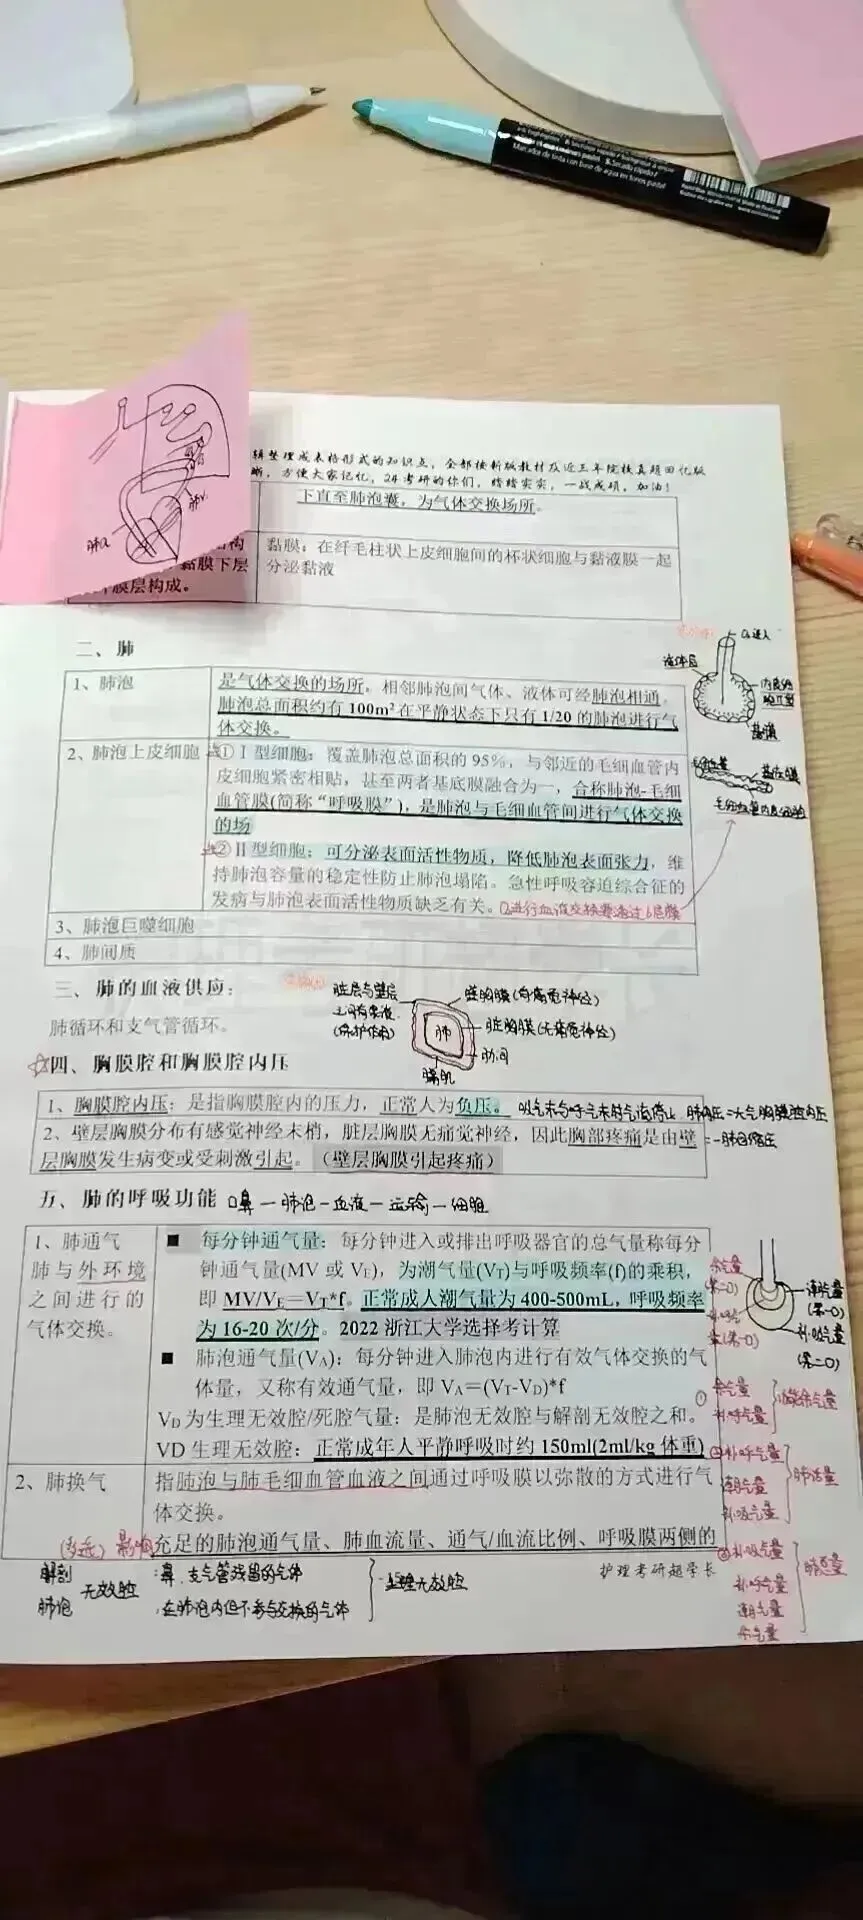 肺a
肺v
辑整理成表格形式的知识点，全部按新版教材及近三年院校真题回忆版
晰，方便大家记忆，24考研的你们，踏踏实实，一战成硕，加油！
下直至肺泡囊，为气体交换场所。
黏膜下层
外膜层构成。
黏膜：在纤毛柱状上皮细胞间的杯状细胞与黏液膜一起
分泌黏液
二、肺
1、肺泡
是气体交换的场所，相邻肺泡间气体、液体可经肺泡相通。
肺泡总面积约有100m²在平静状态下只有1/20的肺泡进行气
体交换。
2、肺泡上皮细胞
①Ⅰ型细胞：覆盖肺泡总面积的95%，与邻近的毛细血管内
皮细胞紧密相贴，甚至两者基底膜融合为一，合称肺泡-毛细
血管膜(简称“呼吸膜”)，是肺泡与毛细血管间进行气体交换
的场
②Ⅱ型细胞：可分泌表面活性物质，降低肺泡表面张力，维
持肺泡容量的稳定性防止肺泡塌陷。急性呼吸容迫综合征的
发病与肺泡表面活性物质缺乏有关。
O₂进入
液体层
3、肺泡巨噬细胞
4、肺间质
三、肺的血液供应：
肺循环和支气管循环。
脏层与壁层
之间有浆液
壁胸膜(有痛觉神经)
脏胸膜(无痛觉神经)
肺
肋间
膈肌
四、胸膜腔和胸膜腔内压
1、胸膜腔内压：是指胸膜腔内的压力，正常人为负压。
吸气末与呼气末时气流停止 肺内压=大气 胸膜腔内压
=-肺回缩压
2、壁层胸膜分布有感觉神经末梢，脏层胸膜无痛觉神经，因此胸部疼痛是由壁
层胸膜发生病变或受刺激引起。（壁层胸膜引起疼痛）
五、肺的呼吸功能 口鼻—肺泡—血液—运输—细胞
1、肺通气
肺与外环境
之间进行的
气体交换。
■ 每分钟通气量：每分钟进入或排出呼吸器官的总气量称每分
钟通气量(MV 或 VE)，为潮气量(VT)与呼吸频率(f)的乘积，
即 MV/VE=VT*f。正常成人潮气量为 400-500mL，呼吸频率
为 16-20 次/分。2022 浙江大学选择考计算
■ 肺泡通气量(VA)：每分钟进入肺泡内进行有效气体交换的气
体量，又称有效通气量，即 VA=(VT-VD)*f
VD 为生理无效腔/死腔气量：是肺泡无效腔与解剖无效腔之和。
VD 生理无效腔：正常成年人平静呼吸时约 150ml(2ml/kg 体重)
余气量
潮气量
补吸气量
① 余气量
补呼气量
功能余气量
②补呼气量
潮气量
补吸气量
肺活量
③补吸气量
补呼气量
潮气量
余气量
肺总量
2、肺换气
指肺泡与肺毛细血管血液之间通过呼吸膜以弥散的方式进行气
体交换。
影响 充足的肺泡通气量、肺血流量、通气/血流比例、呼吸膜两侧的
解剖
肺泡
无效腔
：鼻、支气管残留的气体
：在肺泡内但不参与交换的气体
生理无效腔
护理考研超学长